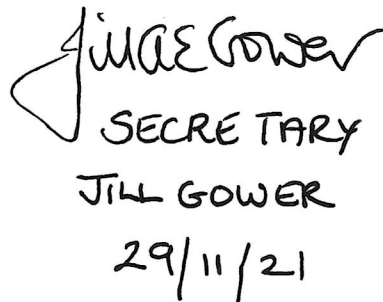 Jill A E Gower
SECRETARY
JILL GOWER
29/11/21